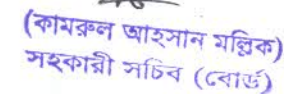 (কামরুল আহসান মল্লিক)
সহকারী সচিব (বোর্ড)